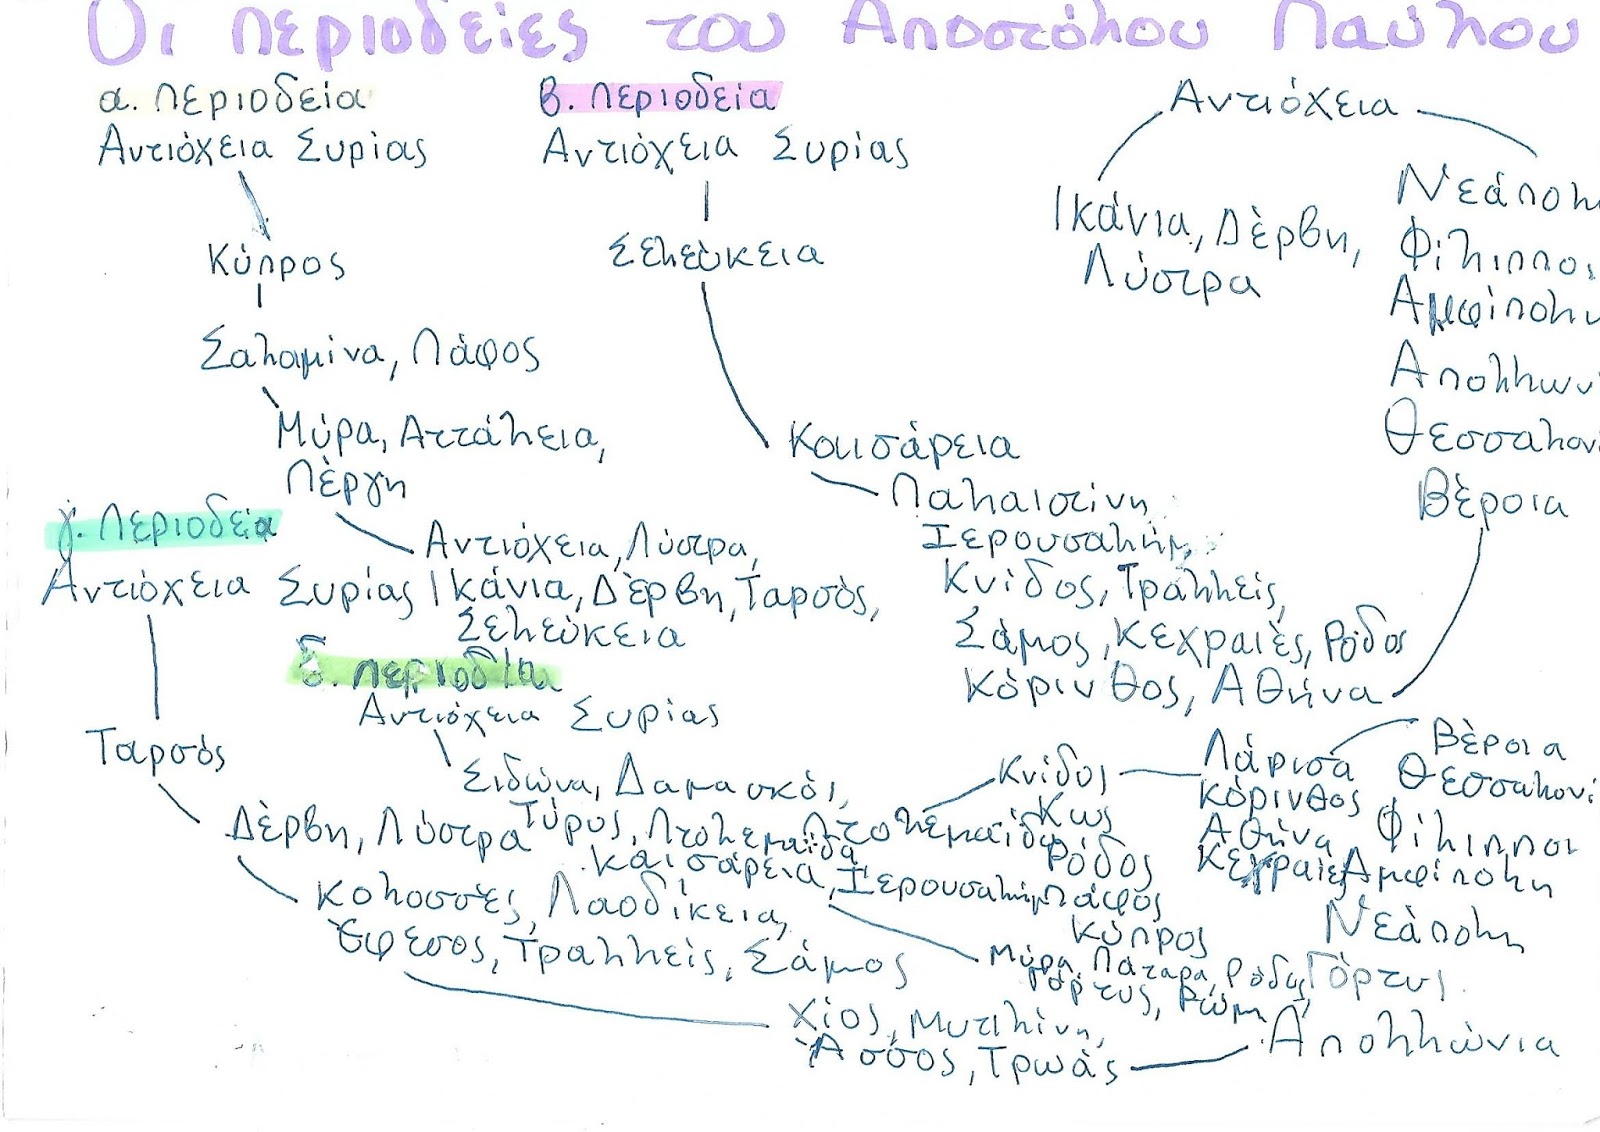 Οι περιοδείες του Αποστόλου Παύλου
α. περιοδεία
Αντιόχεια Συρίας
Κύπρος
Σαλαμίνα, Πάφος
Μύρα, Αττάλεια,
Πέργη
Αντιόχεια, Λύστρα,
Ικάνια, Δέρβη, Ταρσός,
Σελεύκεια
β. περιοδεία
Αντιόχεια Συρίας
Σελεύκεια
Καισάρεια
Παλαιστίνη
Ιερουσαλήμ,
Κνίδος, Τραλλείς,
Σάμος, Κεχραιές, Ρόδος
Κόρινθος, Αθήνα
Βέροια
Θεσσαλονί
Απολλωνί
Αμφίπολη
Φίλιπποι
Νεάπολη
Αντιόχεια
Ικάνια, Δέρβη,
Λύστρα
γ. περιοδεία
Αντιόχεια Συρίας
Ταρσός
Δέρβη, Λύστρα
Κολοσσές, Λαοδίκεια,
Έφεσος, Τραλλείς, Σάμος
Χίος, Μυτιλίνη,
Άσσος, Τρωάς
Απολλώνια
Γόρτυς
Νεάπολη
Αμφίπολη
Φίλιπποι
Θεσσαλονί
Βέροια
Λάρισα
Κόρινθος
Αθήνα
Κεχραιές
Κνίδος
Κως
Ρόδος
Πάφος
Κύπρος
Πτολεμαΐδα
δ. περιοδία
Αντιόχεια Συρίας
Σιδώνα, Δαμασκός,
Τύρος, Πτολεμαΐδα
Καισάρεια, Ιερουσαλήμ
Μύρα, Πάταρα, Ρόδος,
Γόρτυς, Ρώμη